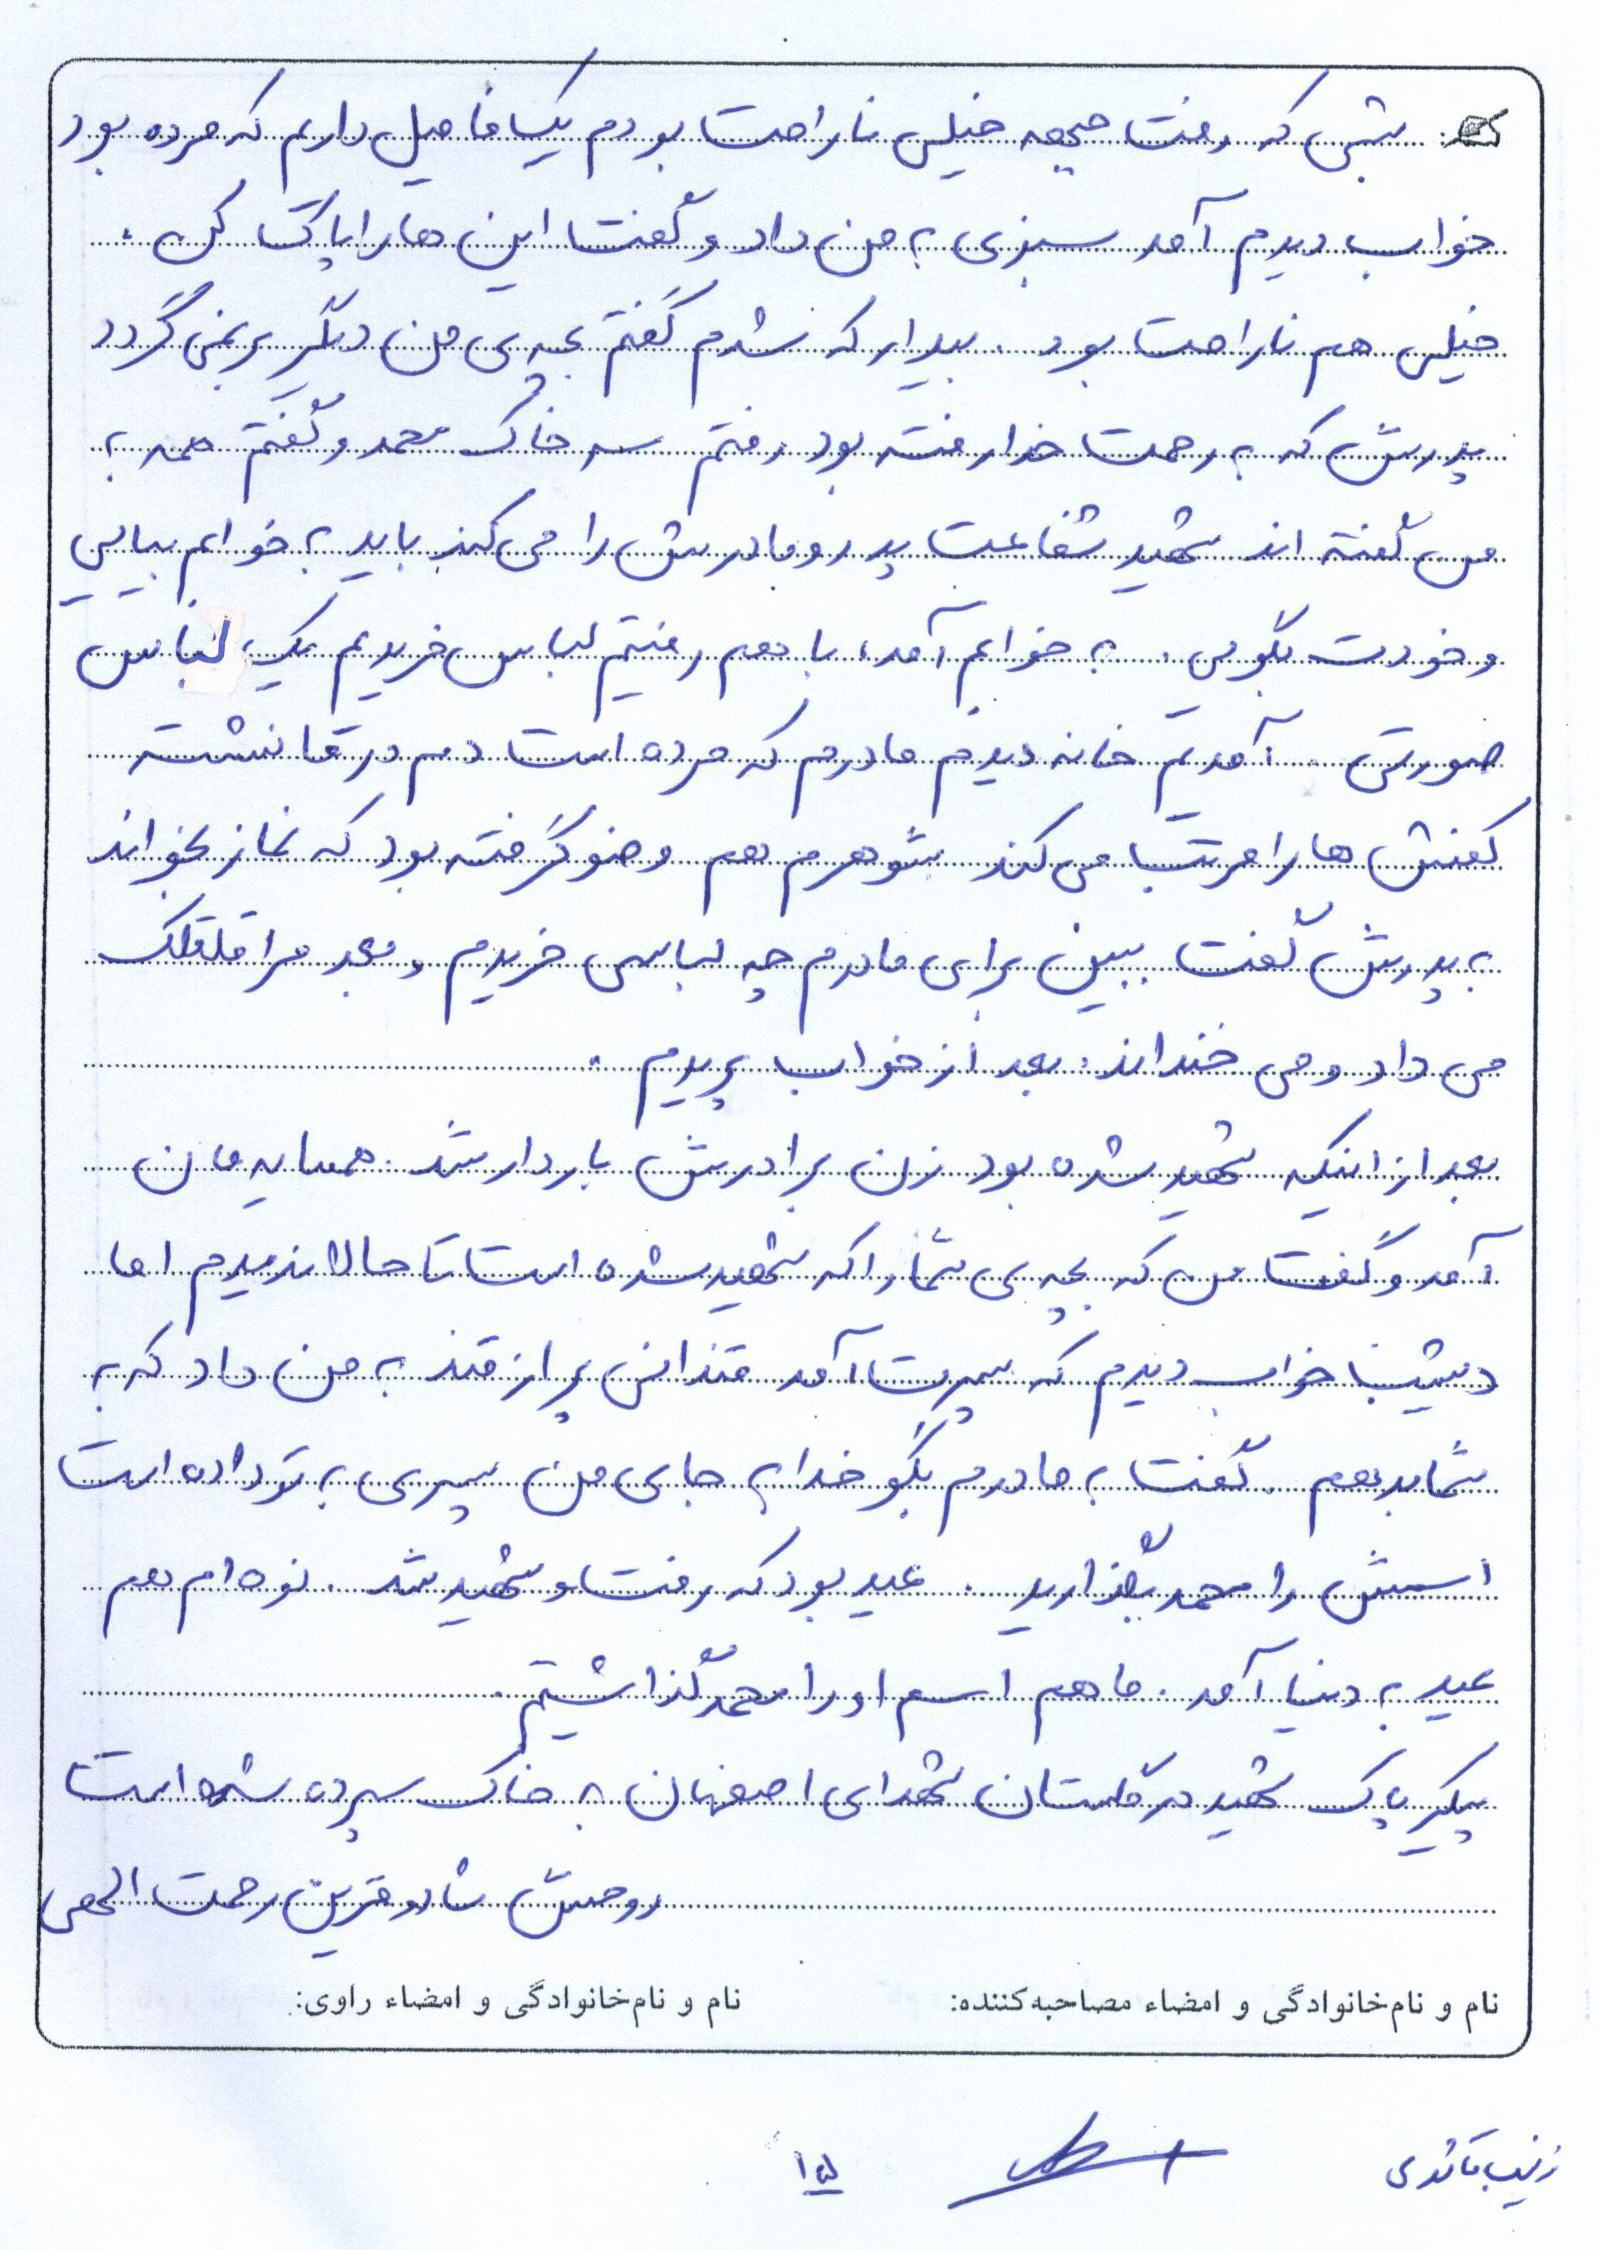 شبی که رفت جبهه خیلی ناراحت بودم یک فامیل داریم که مرده بود
خواب دیدم آمد سبزی به من داد و گفت این ها را پاک کن .
خیلی هم ناراحت بود . بیدار که شدم گفتم بچه ی من دیگر برنمی گردد
پدرش که به رحمت خدا رفته بود رفتم سر خاک محمد و گفتم همه به
من گفته اند شهید شفاعت پدر و مادرش را می کند باید به خوابم بیایی
و خودت بگویی . به خوابم آمد، با هم رفتیم لباس خریدیم یک لباس
صورتی . آمدیم خانه دیدم مادرم که مرده است دم در قا نشسته
کفش ها را مرتب می کند شوهرم هم وضو گرفته بود که نماز بخواند
به پدرش گفت ببین برای مادرم چه لباسی خریدم و بعد مرا قلقلک
می داد و می خنداند. بعد از خواب پریدم .
بعد از اینکه شهید شده بود زن برادرش باردار شد . همسایه مان
آمد و گفت من که بچه ی شما را که شهید شده است تا حالا ندیدم اما
دیشب خواب دیدم که پسرت آمد قندانی پر از قند به من داد که به
شما بدهم . گفت به مادرم بگو خدا به جای من پسری به تو داده است
اسمش را محمد بگذارید . عید بود که رفت و شهید شد . نوه ام هم
عید به دنیا آمد . ما هم اسم او را محمد گذاشتیم .
پیکر پاک شهید در گلستان شهدای اصفهان به خاک سپرده شده است
روحش شاد و قرین رحمت الهی
نام و نام‌خانوادگی و امضاء مصاحبه‌کننده: نام و نام‌خانوادگی و امضاء راوی:
زینب قائدی
۱۵